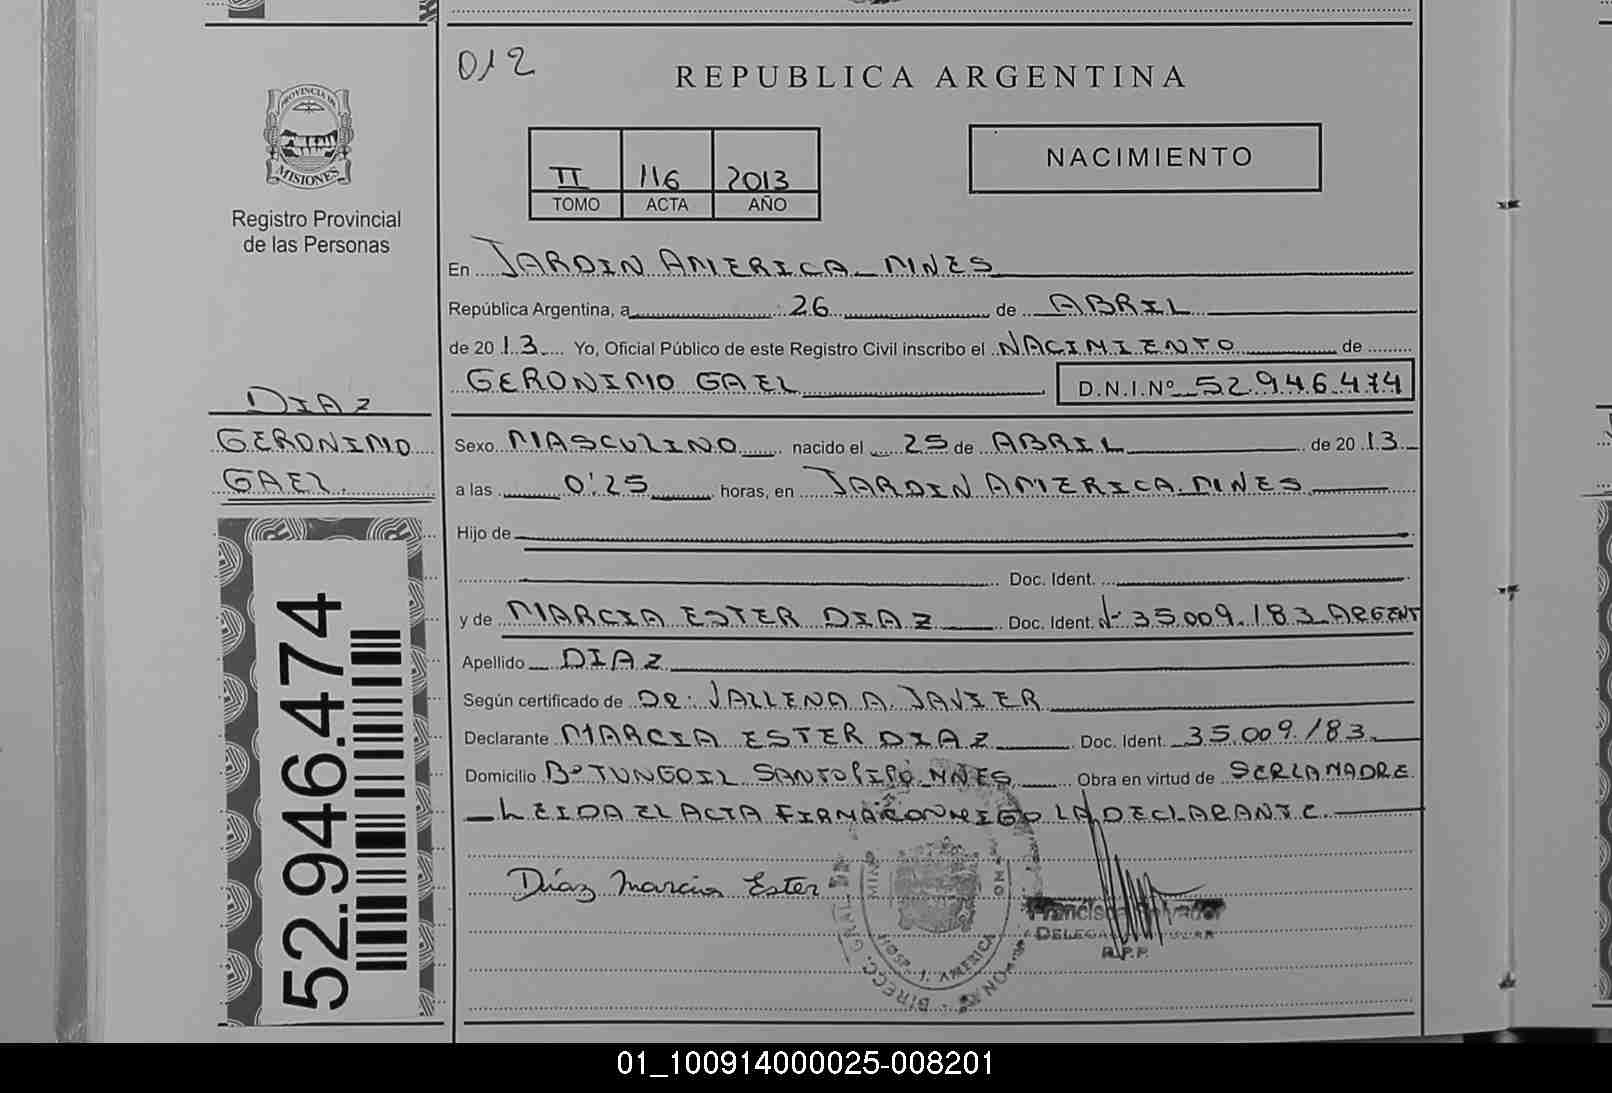 012
REPUBLICA ARGENTINA
PROVINCIA DE
MISIONES
Registro Provincial
de las Personas
II 116 2013
TOMO ACTA AÑO
NACIMIENTO
En JARDIN AMERICA MNES
República Argentina, a 26 de ABRIL
de 2013 Yo, Oficial Público de este Registro Civil inscribo el NACIMIENTO de
GERONIMO GAEL D.N.I.Nº 52.946.474
DIAZ
GERONIMO
GAEL
Sexo MASCULINO nacido el 25 de ABRIL de 2013
a las 0:25 horas, en JARDIN AMERICA MNES
Hijo de
Doc. Ident.
y de MARCIA ESTER DIAZ Doc. Ident. 35.009.183 ARGENT
Apellido DIAZ
Según certificado de DR: VALLENA A. JAVIER
Declarante MARCIA ESTER DIAZ Doc. Ident. 35.009.183
Domicilio Bº TUNGOIL SANTO PIPO MNES Obra en virtud de SER LA MADRE
LEIDA EL ACTA FIRMA CONMIGO LA DECLARANTE
Díaz Marcia Ester
DIRECC. GRAL DE
AMERICA
R.P.P.
52.946.474
01_100914000025-008201